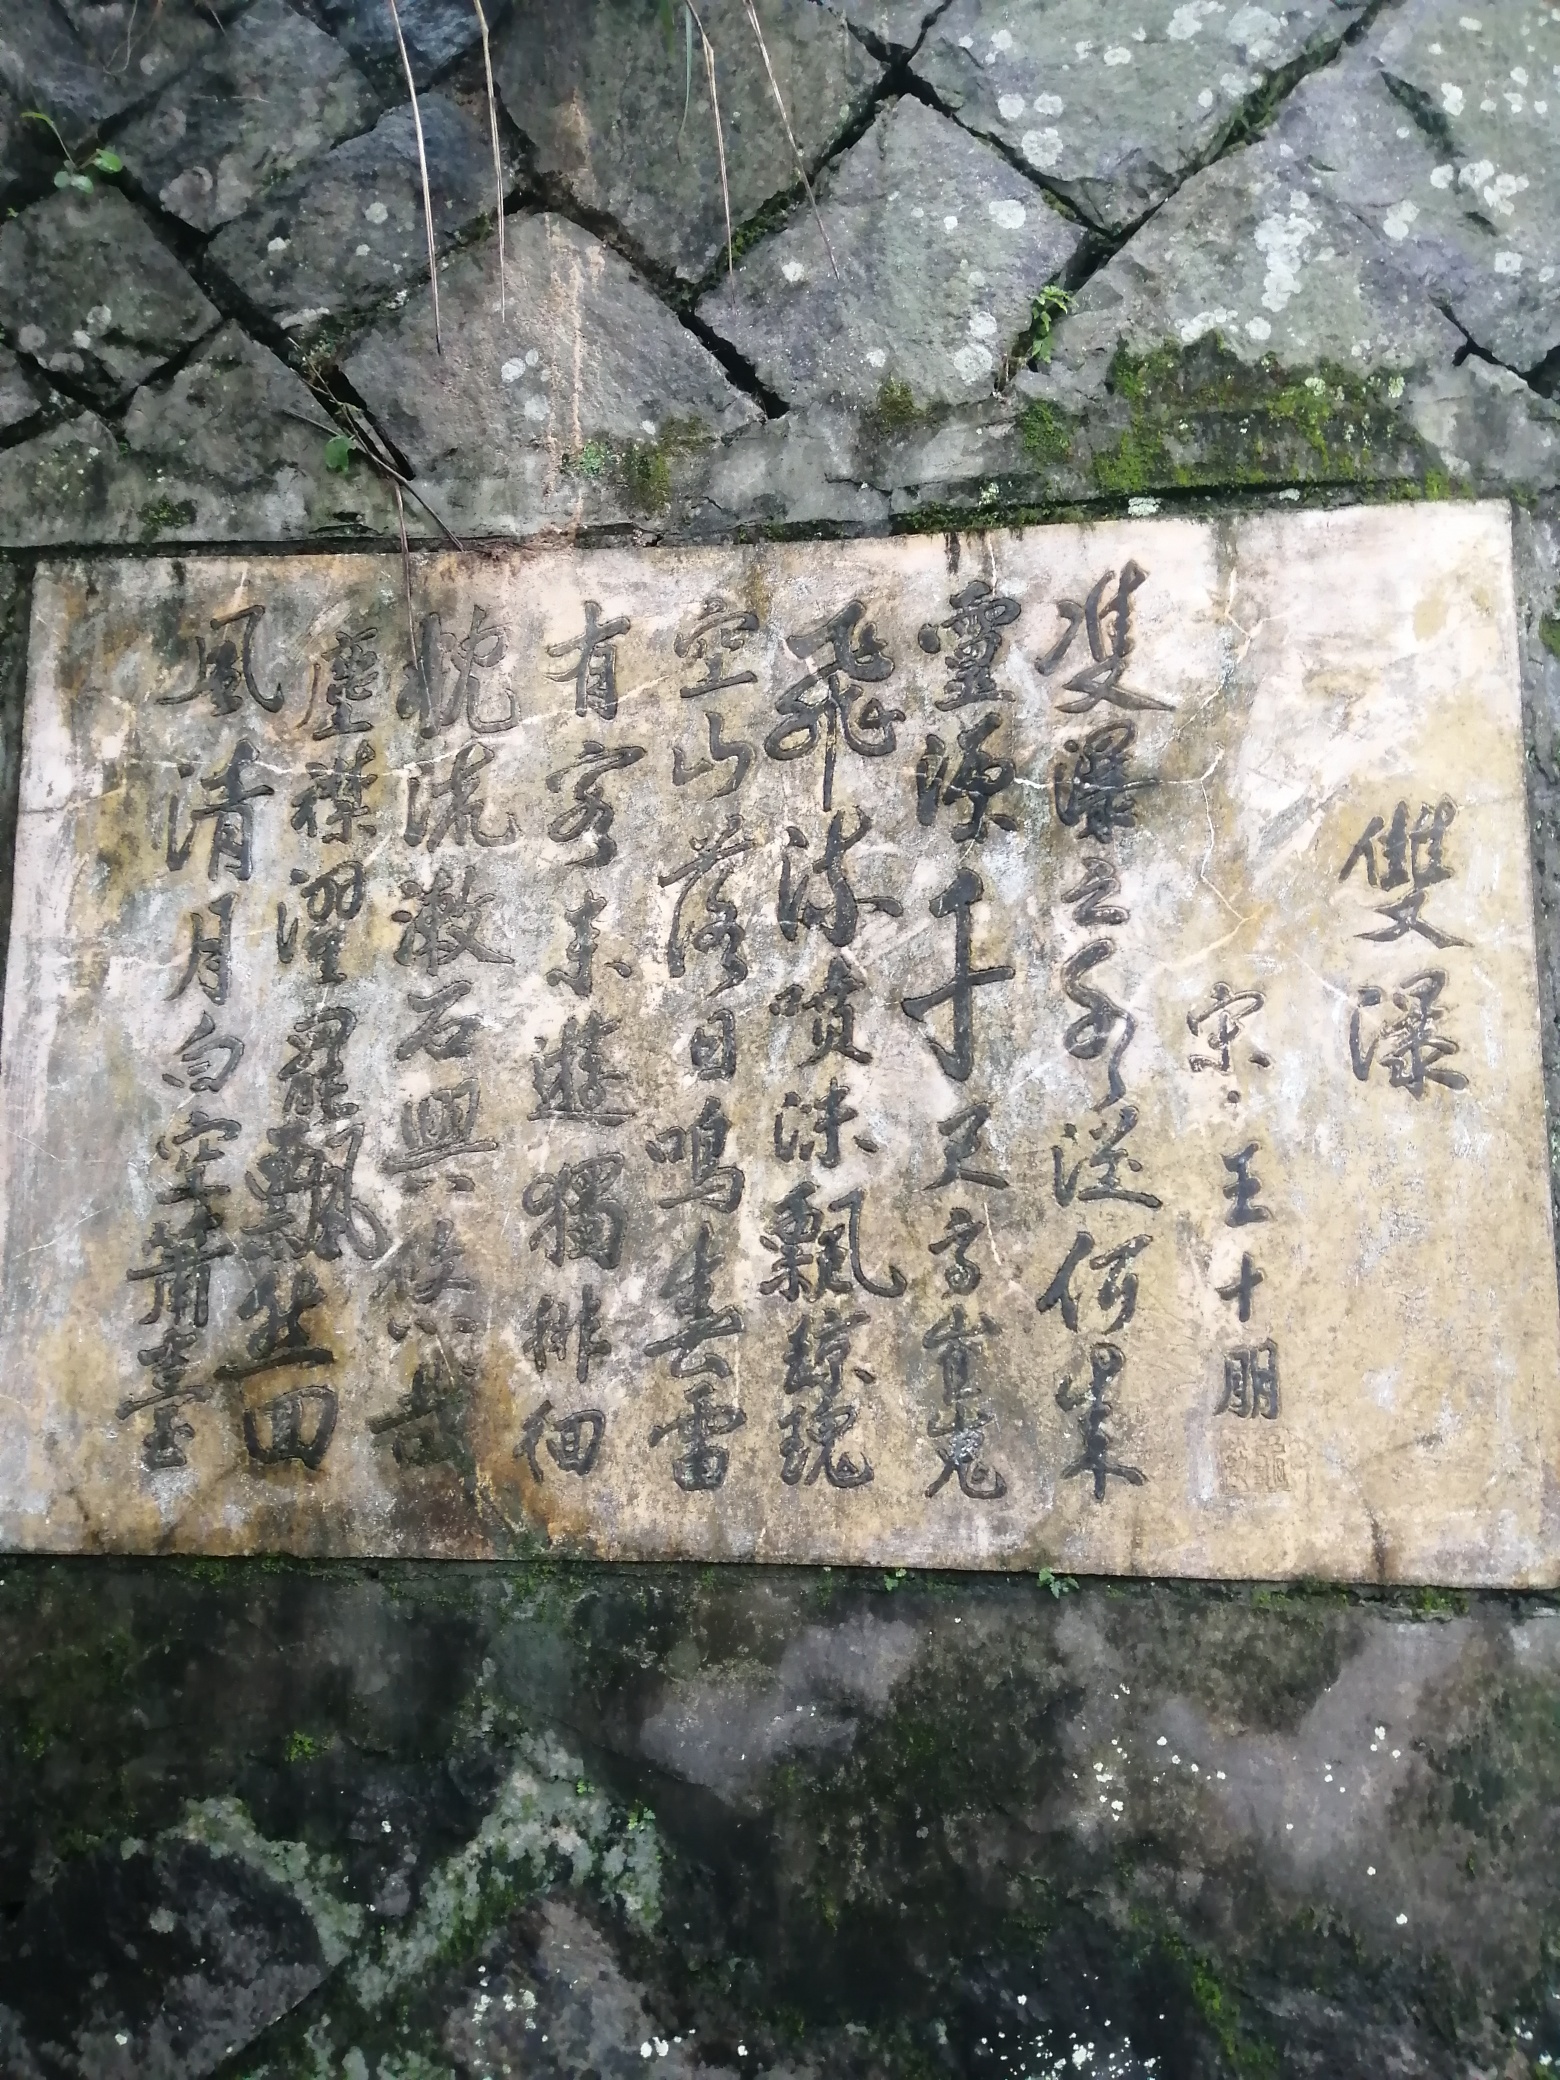 雙瀑
宋·王十朋
雙瀑之水從何来
靈源千尺高崔嵬
飛流噴沫飄瓊瑰
空山落日鳴春雷
有客来遊獨徘徊
枕流漱石興悠哉
塵襟濯罷飄然回
風清月白空簫臺